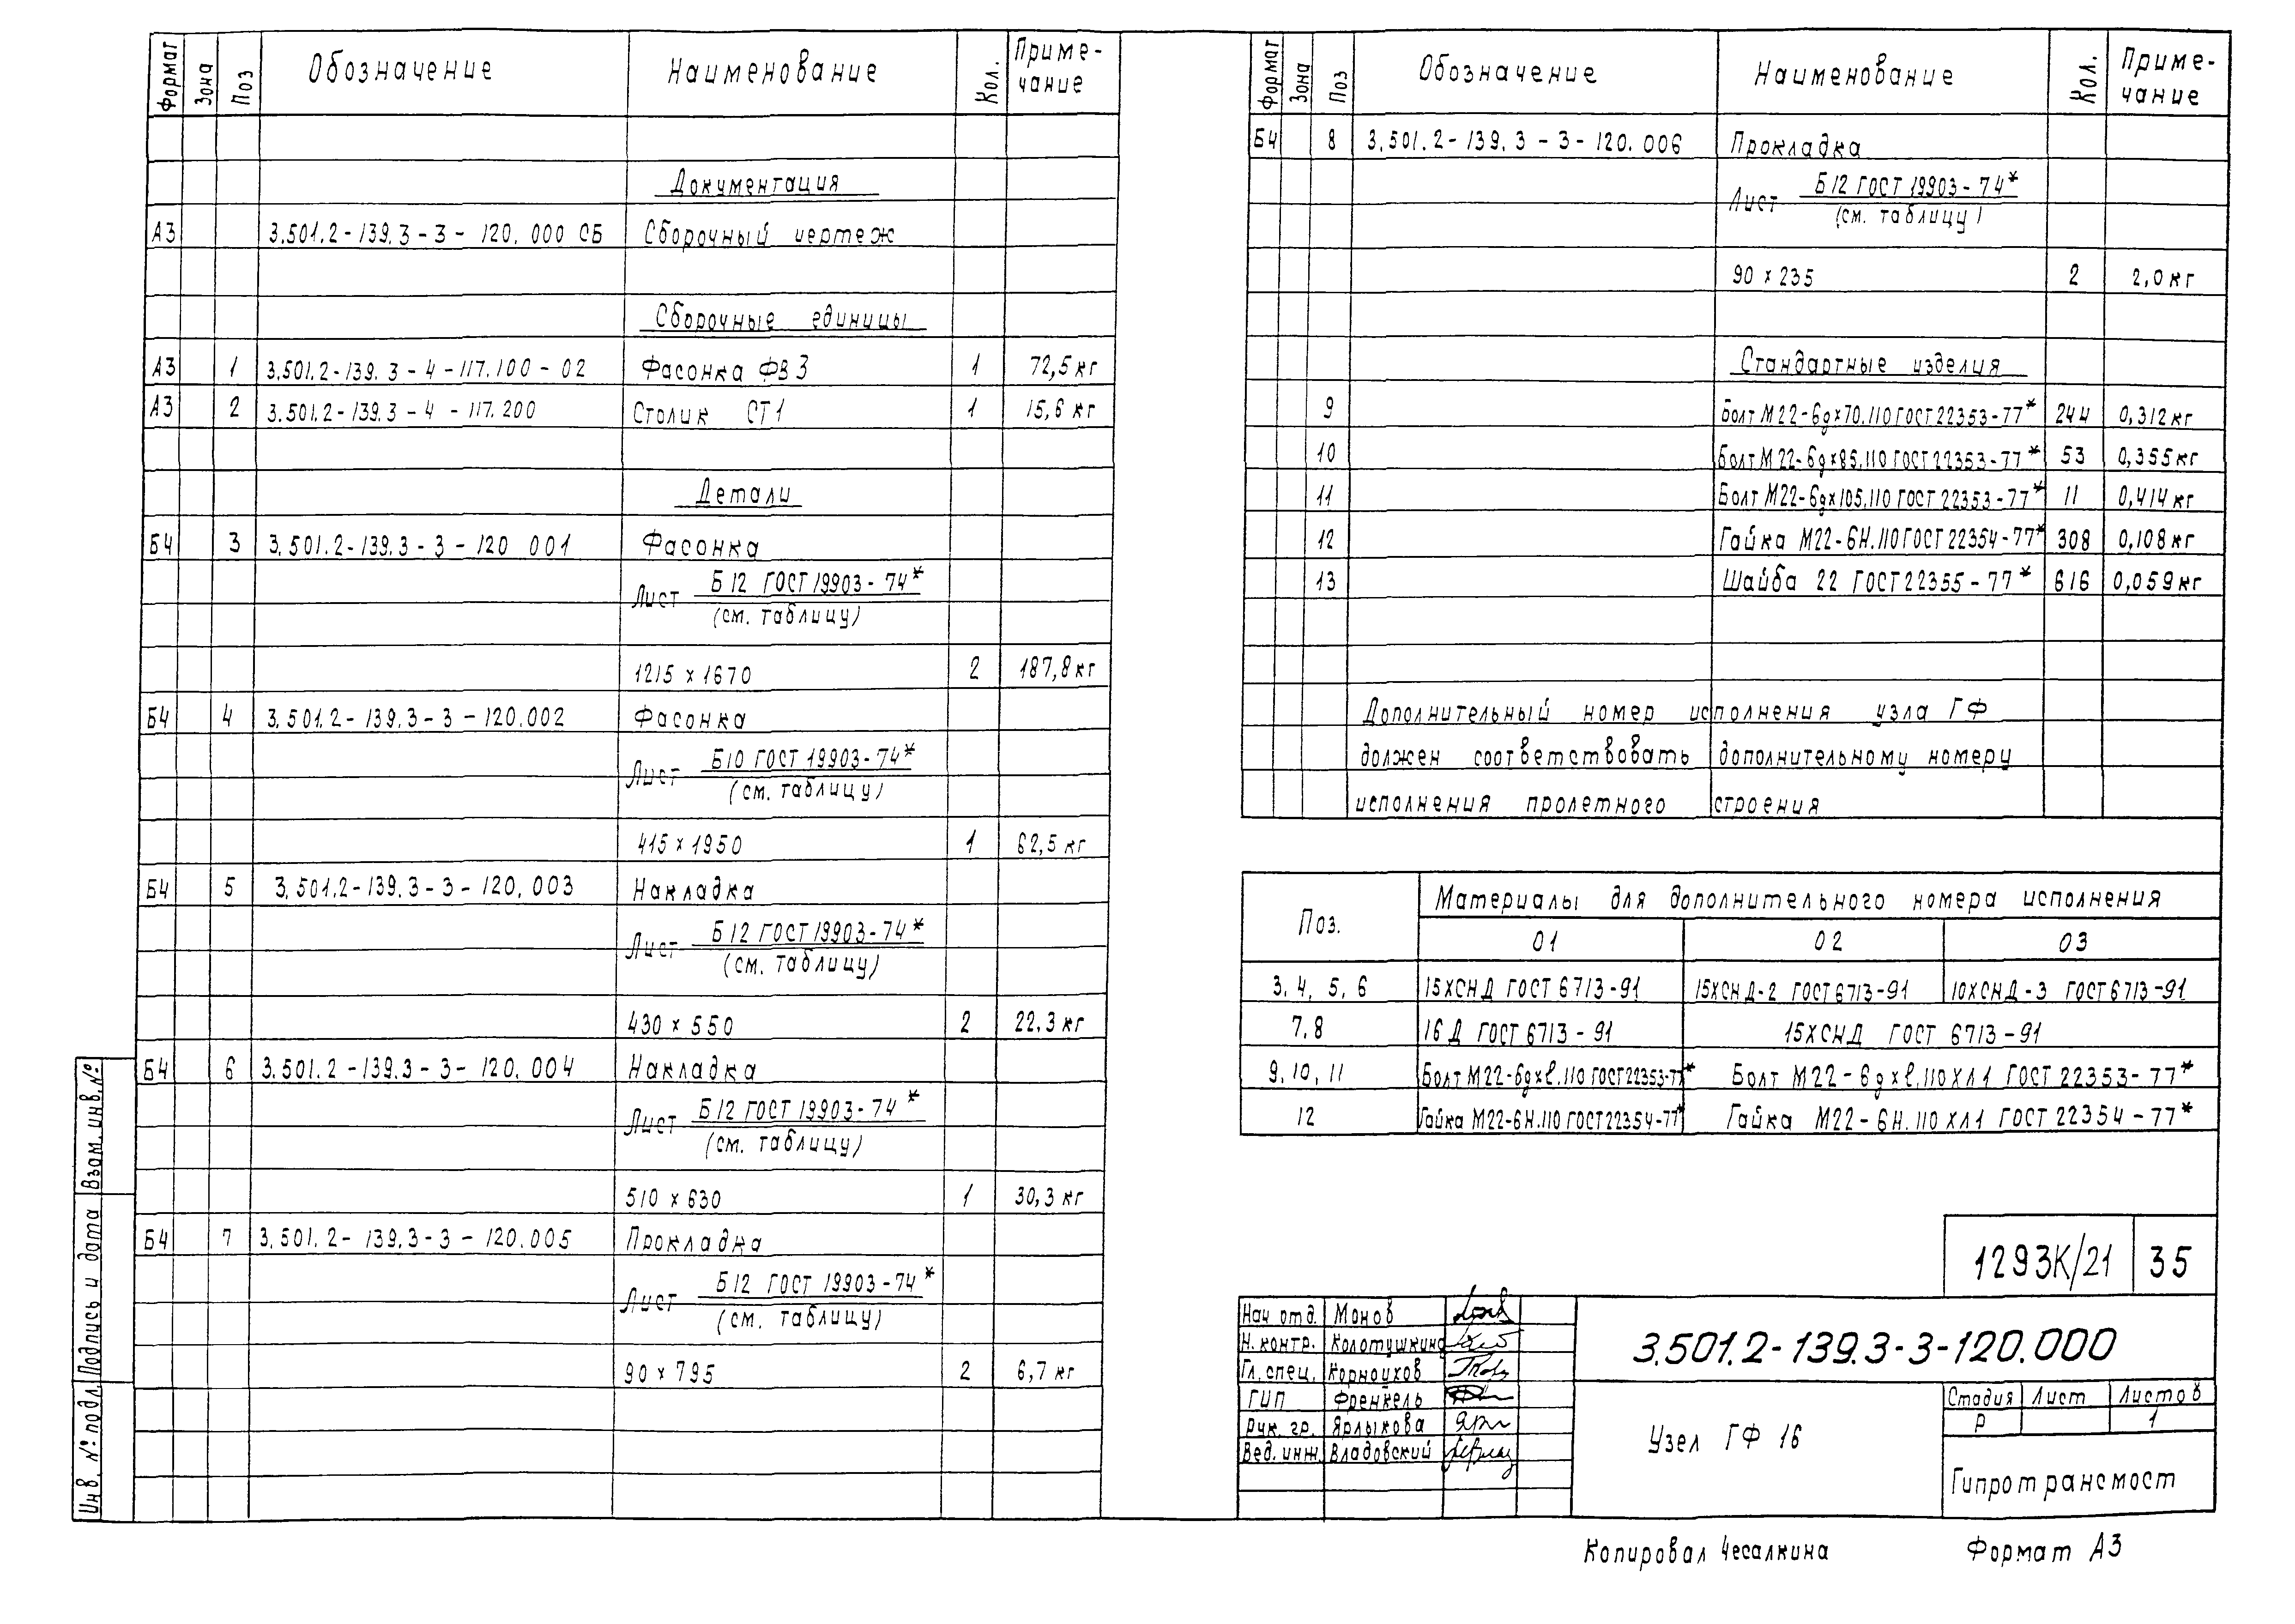 Формат Зона Поз Обозначение Наименование Кол. Приме-
чание
Документация
А3 3.501.2-139.3-3-120.000 СБ Сборочный чертеж
Сборочные единицы
А3 1 3.501.2-139.3-4-117.100-02 Фасонка ФВ3 1 72,5 кг
А3 2 3.501.2-139.3-4-117.200 Столик СТ1 1 15,6 кг
Детали
Б4 3 3.501.2-139.3-3-120 001 Фасонка
Лист Б12 ГОСТ 19903-74*
(см. таблицу)
1215 х 1670 2 187,8 кг
Б4 4 3.501.2-139.3-3-120.002 Фасонка
Лист Б10 ГОСТ 19903-74*
(см. таблицу)
415 х 1950 1 62,5 кг
Б4 5 3.501.2-139.3-3-120.003 Накладка
Лист Б12 ГОСТ 19903-74*
(см. таблицу)
430 х 550 2 22,3 кг
Б4 6 3.501.2-139.3-3-120.004 Накладка
Лист Б12 ГОСТ 19903-74*
(см. таблицу)
510 х 630 1 30,3 кг
Б4 7 3.501.2-139.3-3-120.005 Прокладка
Лист Б12 ГОСТ 19903-74*
(см. таблицу)
90 х 795 2 6,7 кг
Инв. № подл. Подпись и дата Взам. инв. №
Формат Зона Поз Обозначение Наименование Кол. Приме-
чание
Б4 8 3.501.2-139.3-3-120.006 Прокладка
Лист Б12 ГОСТ 19903-74*
(см. таблицу)
90 х 235 2 2,0 кг
Стандартные изделия
9 Болт М22-6gх70.110 ГОСТ 22353-77* 244 0,312 кг
10 Болт М22-6gх85.110 ГОСТ 22353-77* 53 0,355 кг
11 Болт М22-6gх105.110 ГОСТ 22353-77* 11 0,414 кг
12 Гайка М22-6Н.110 ГОСТ 22354-77* 308 0,108 кг
13 Шайба 22 ГОСТ 22355-77* 616 0,059 кг
Дополнительный номер исполнения узла ГФ
должен соответствовать дополнительному номеру
исполнения пролетного строения
Поз. Материалы для дополнительного номера исполнения
01 02 03
3, 4, 5, 6 15ХСНД ГОСТ 6713-91 15ХСНД-2 ГОСТ 6713-91 10ХСНД-3 ГОСТ 6713-91
7,8 16Д ГОСТ 6713-91 15ХСНД ГОСТ 6713-91
9, 10, 11 Болт М22-6gхℓ.110 ГОСТ 22353-77* Болт М22-6gхℓ.110 ХЛ1 ГОСТ 22353-77*
12 Гайка М22-6Н.110 ГОСТ 22354-77* Гайка М22-6Н.110 ХЛ1 ГОСТ 22354-77*
1293К/21 35
Нач. отд. Монов
Н. контр. Колотушкина
Гл. спец. Корноухов
ГИП Френкель
Рук. гр. Ярлыкова
Вед. инж. Владовский
3.501.2-139.3-3-120.000
Узел ГФ 16
Стадия Лист Листов
Р 1
Гипротрансмост
Копировал Чесалкина Формат А3